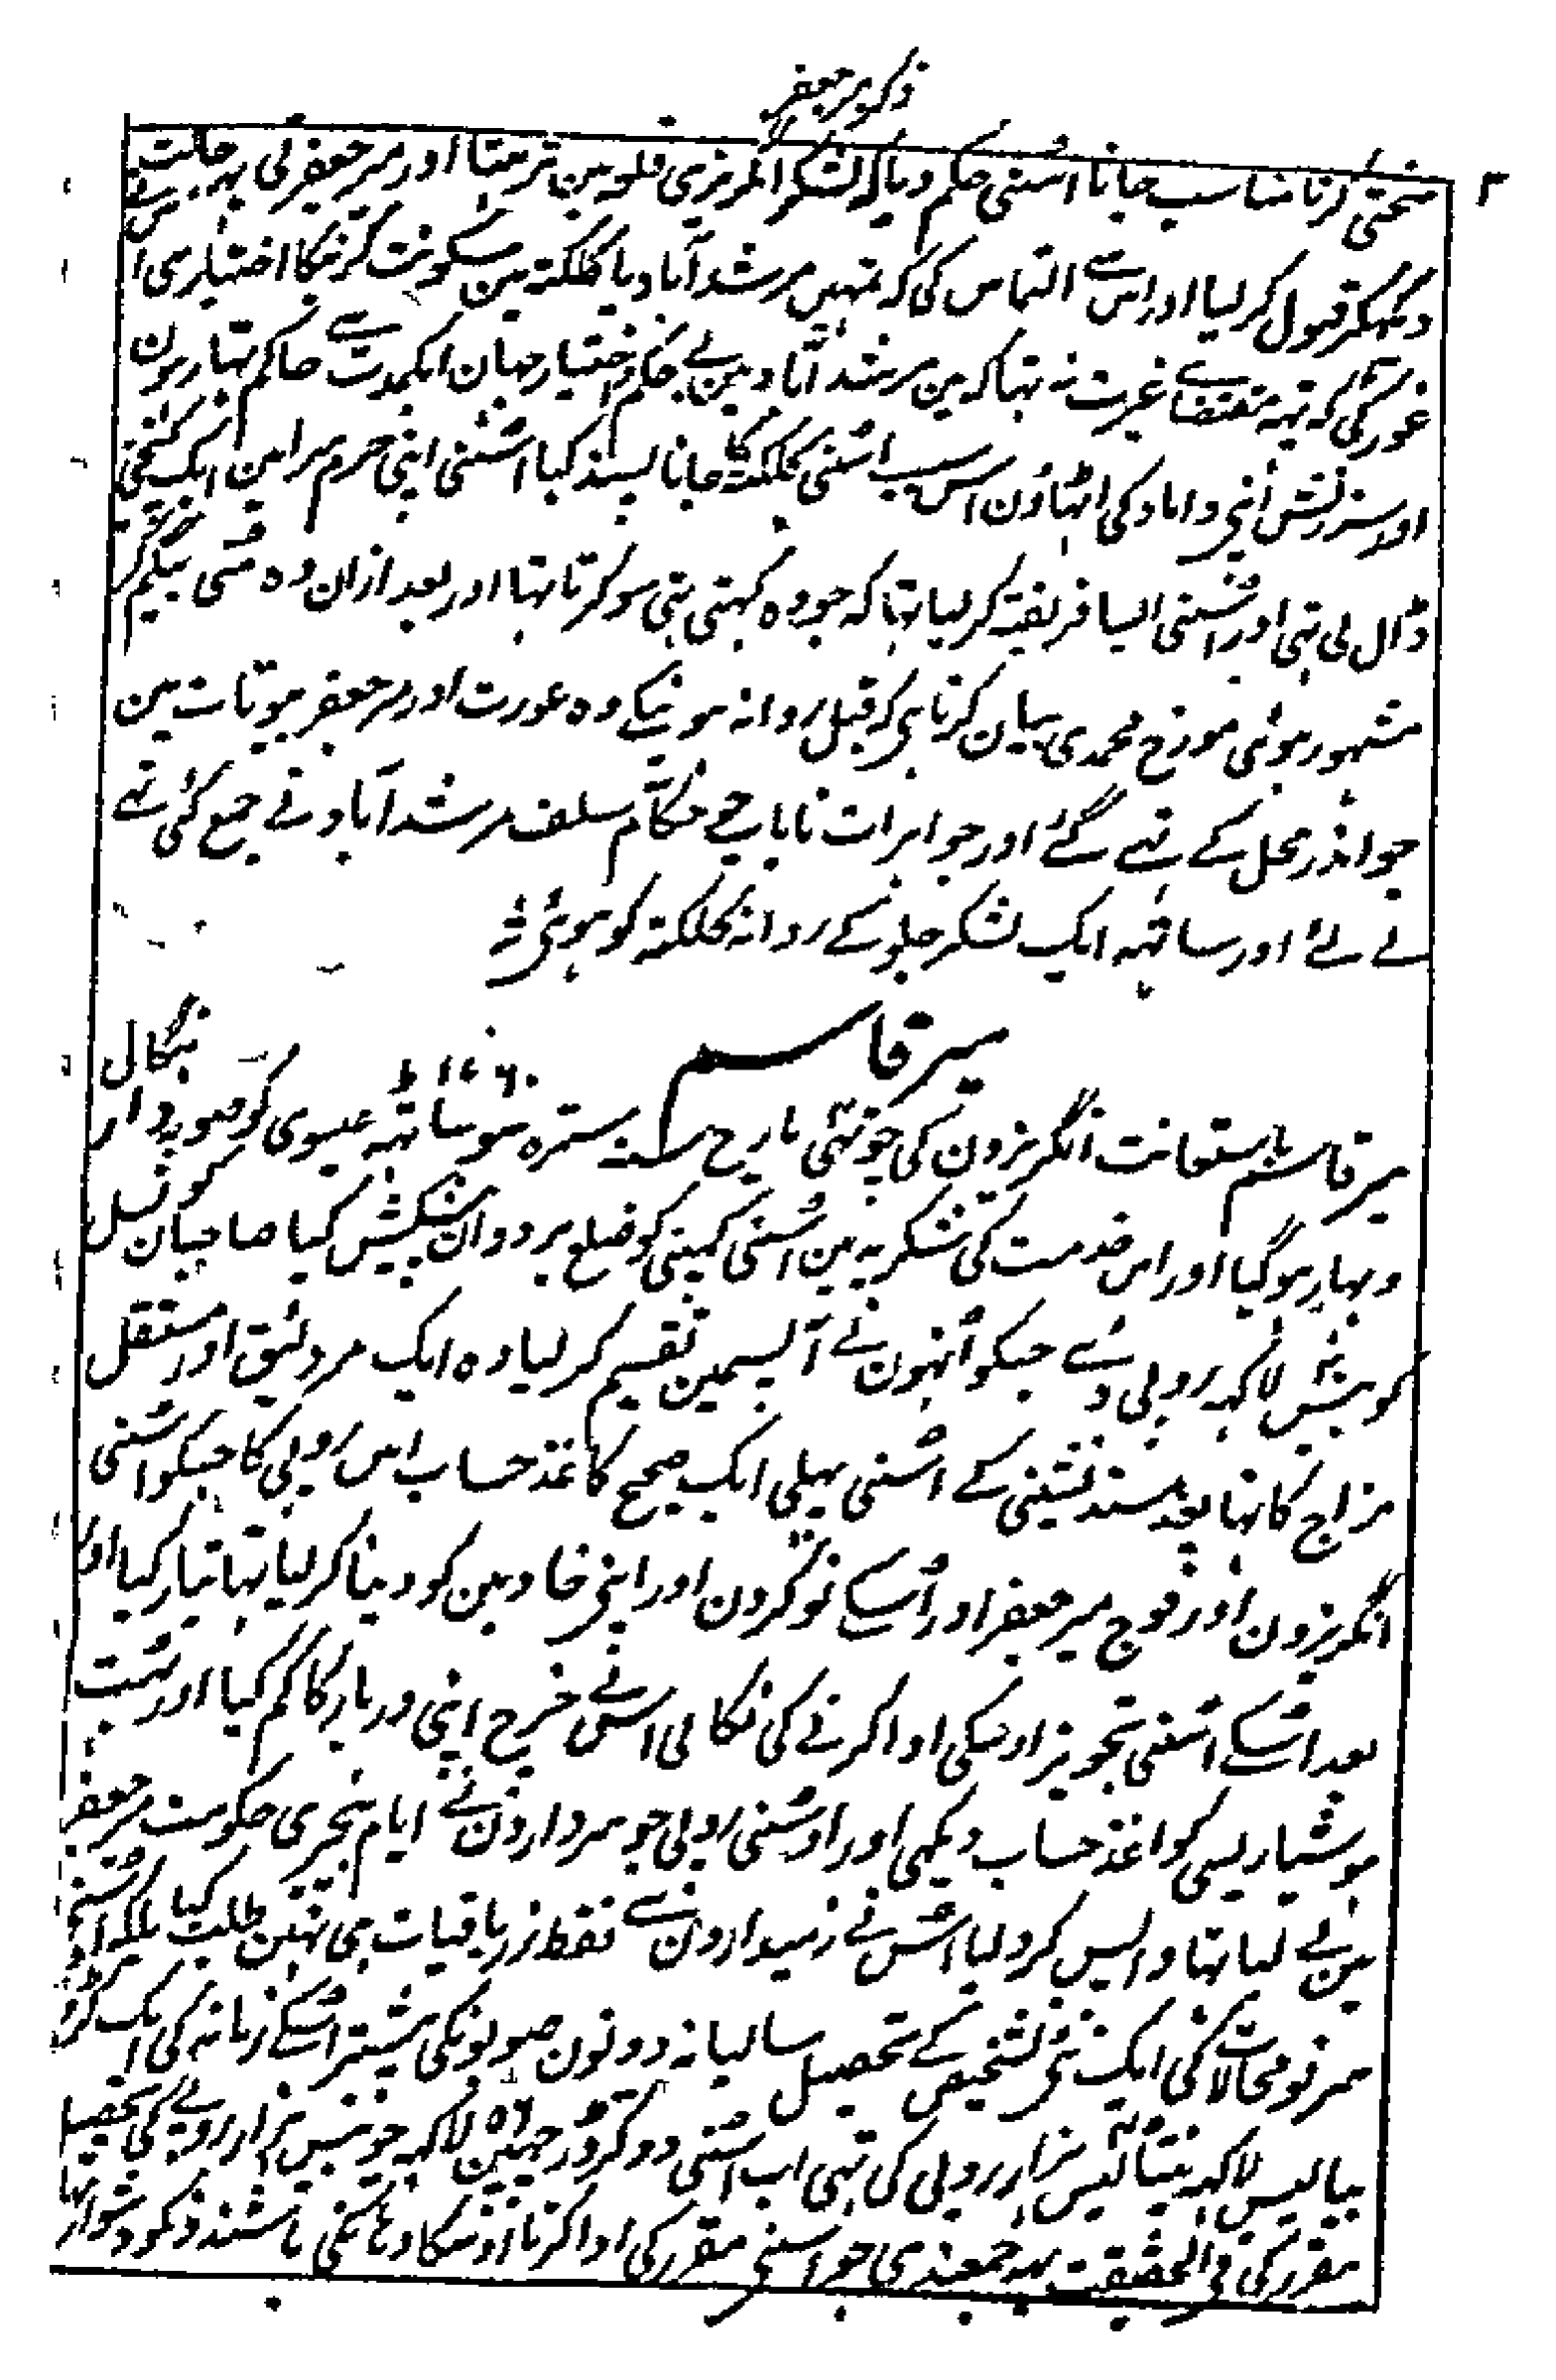 ذکر میر جعفر
۳
سختی کرنا مناسب جانا اسنی حکم دیا کہ لشکر انگریزی قلعہ مین در آیا اور میر جعفر نی یہ حالت
دیکہکر قبول کر لیا اور اس سے التماس کی کہ تمہین مرشد آباد یا کلکتہ مین سکونت کرنیکا اختیار ہی اس نے
غور کی کہ یہ مقتضاے غیرت نہ تہا کہ مین مرشد آباد مین بے حکم و اختیار جہان ایکمدت سے حاکم تہا رہون
اور سرزنش اپنی داماد کی اٹہاؤن اس سبب اسنی کلکتہ کا جانا پسند کیا اسنی اپنی حرم سرا مین ایک کنچنی
ڈال لی تہی اور اسنی ایسا فریفتہ کر لیا تہا کہ جو وہ کہتی تہی سو کرتا تہا اور بعد ازان وہ منی بیگم کر
مشہور ہوئی مورخ محمدی بیان کرتا ہی کہ قبل روانہ ہونیکے وہ عورت اور میر جعفر بیوتات مین
جو اندر محل کے تہے گئے اور جواہرات نایاب جو حکام سلف مرشد آباد نے جمع کئی تہے
لے لئے اور ساتہہ ایک لشکر جلو کے روانہ کلکتہ کو ہوئی
میر قاسم
میر قاسم باستعانت انگریزون کی چوتہی تاریخ سنہ ۱۷۶۰ سترہ سو ساٹہہ عیسوی کو صوبہ دار بنگال
و بہار ہو گیا اور اس خدمت کی شکریہ مین اسنی کمپنی کو ضلع بردوان پیشکش کیا صاحبان کونسل
کو بیس لاکہہ روپی دے جسکو انہون نے آپسمین تقسیم کر لیا وہ ایک مرد لئیق اور مستقل
مزاج کا تہا بعد مسند نشینی کے اسنی پہلی ایک صحیح کاغذ حساب اس روپی کا جسکو اسنی
انگریزون اور فوج میر جعفر اور اسکے نوکرون اور اپنی خادمین کو دینا کر لیا تہا تیار کیا اور
بعد اسکے اسنی تجویز اوسکی ادا کرنے کی نکالی اس نے خرچ اپنی دربار کا کم کیا اور بہت
ہوشیاریسی کواغذ حساب دیکہی اور اوسنی روپی جو سردارون نے ایام بیخبری حکومت میر جعفر
مین لے لیا تہا واپس کر لیا اس نے زمیدارون سے فقط زر باقیات ہی نہین طلب کیا بلکہ اوسنی
سر نو محالات کی ایک نئی تشخیص کے تحصیل سالیانہ دونون صوبونکی پیشتر اسکے زمانہ کی ایک کروڑ
بیالیس لاکہہ پینتالیس ہزار روپی کی تہی اب اسنی دو کروڑ چہپن ۵۶ لاکہہ چوبیس ہزار روپے کی تحصیل
مقرر کی فی الحقیقت یہ جمعبندی جو اسنی مقرر کی ادا کرنا اوسکا وہانکی باشندونکو دشوار تہا